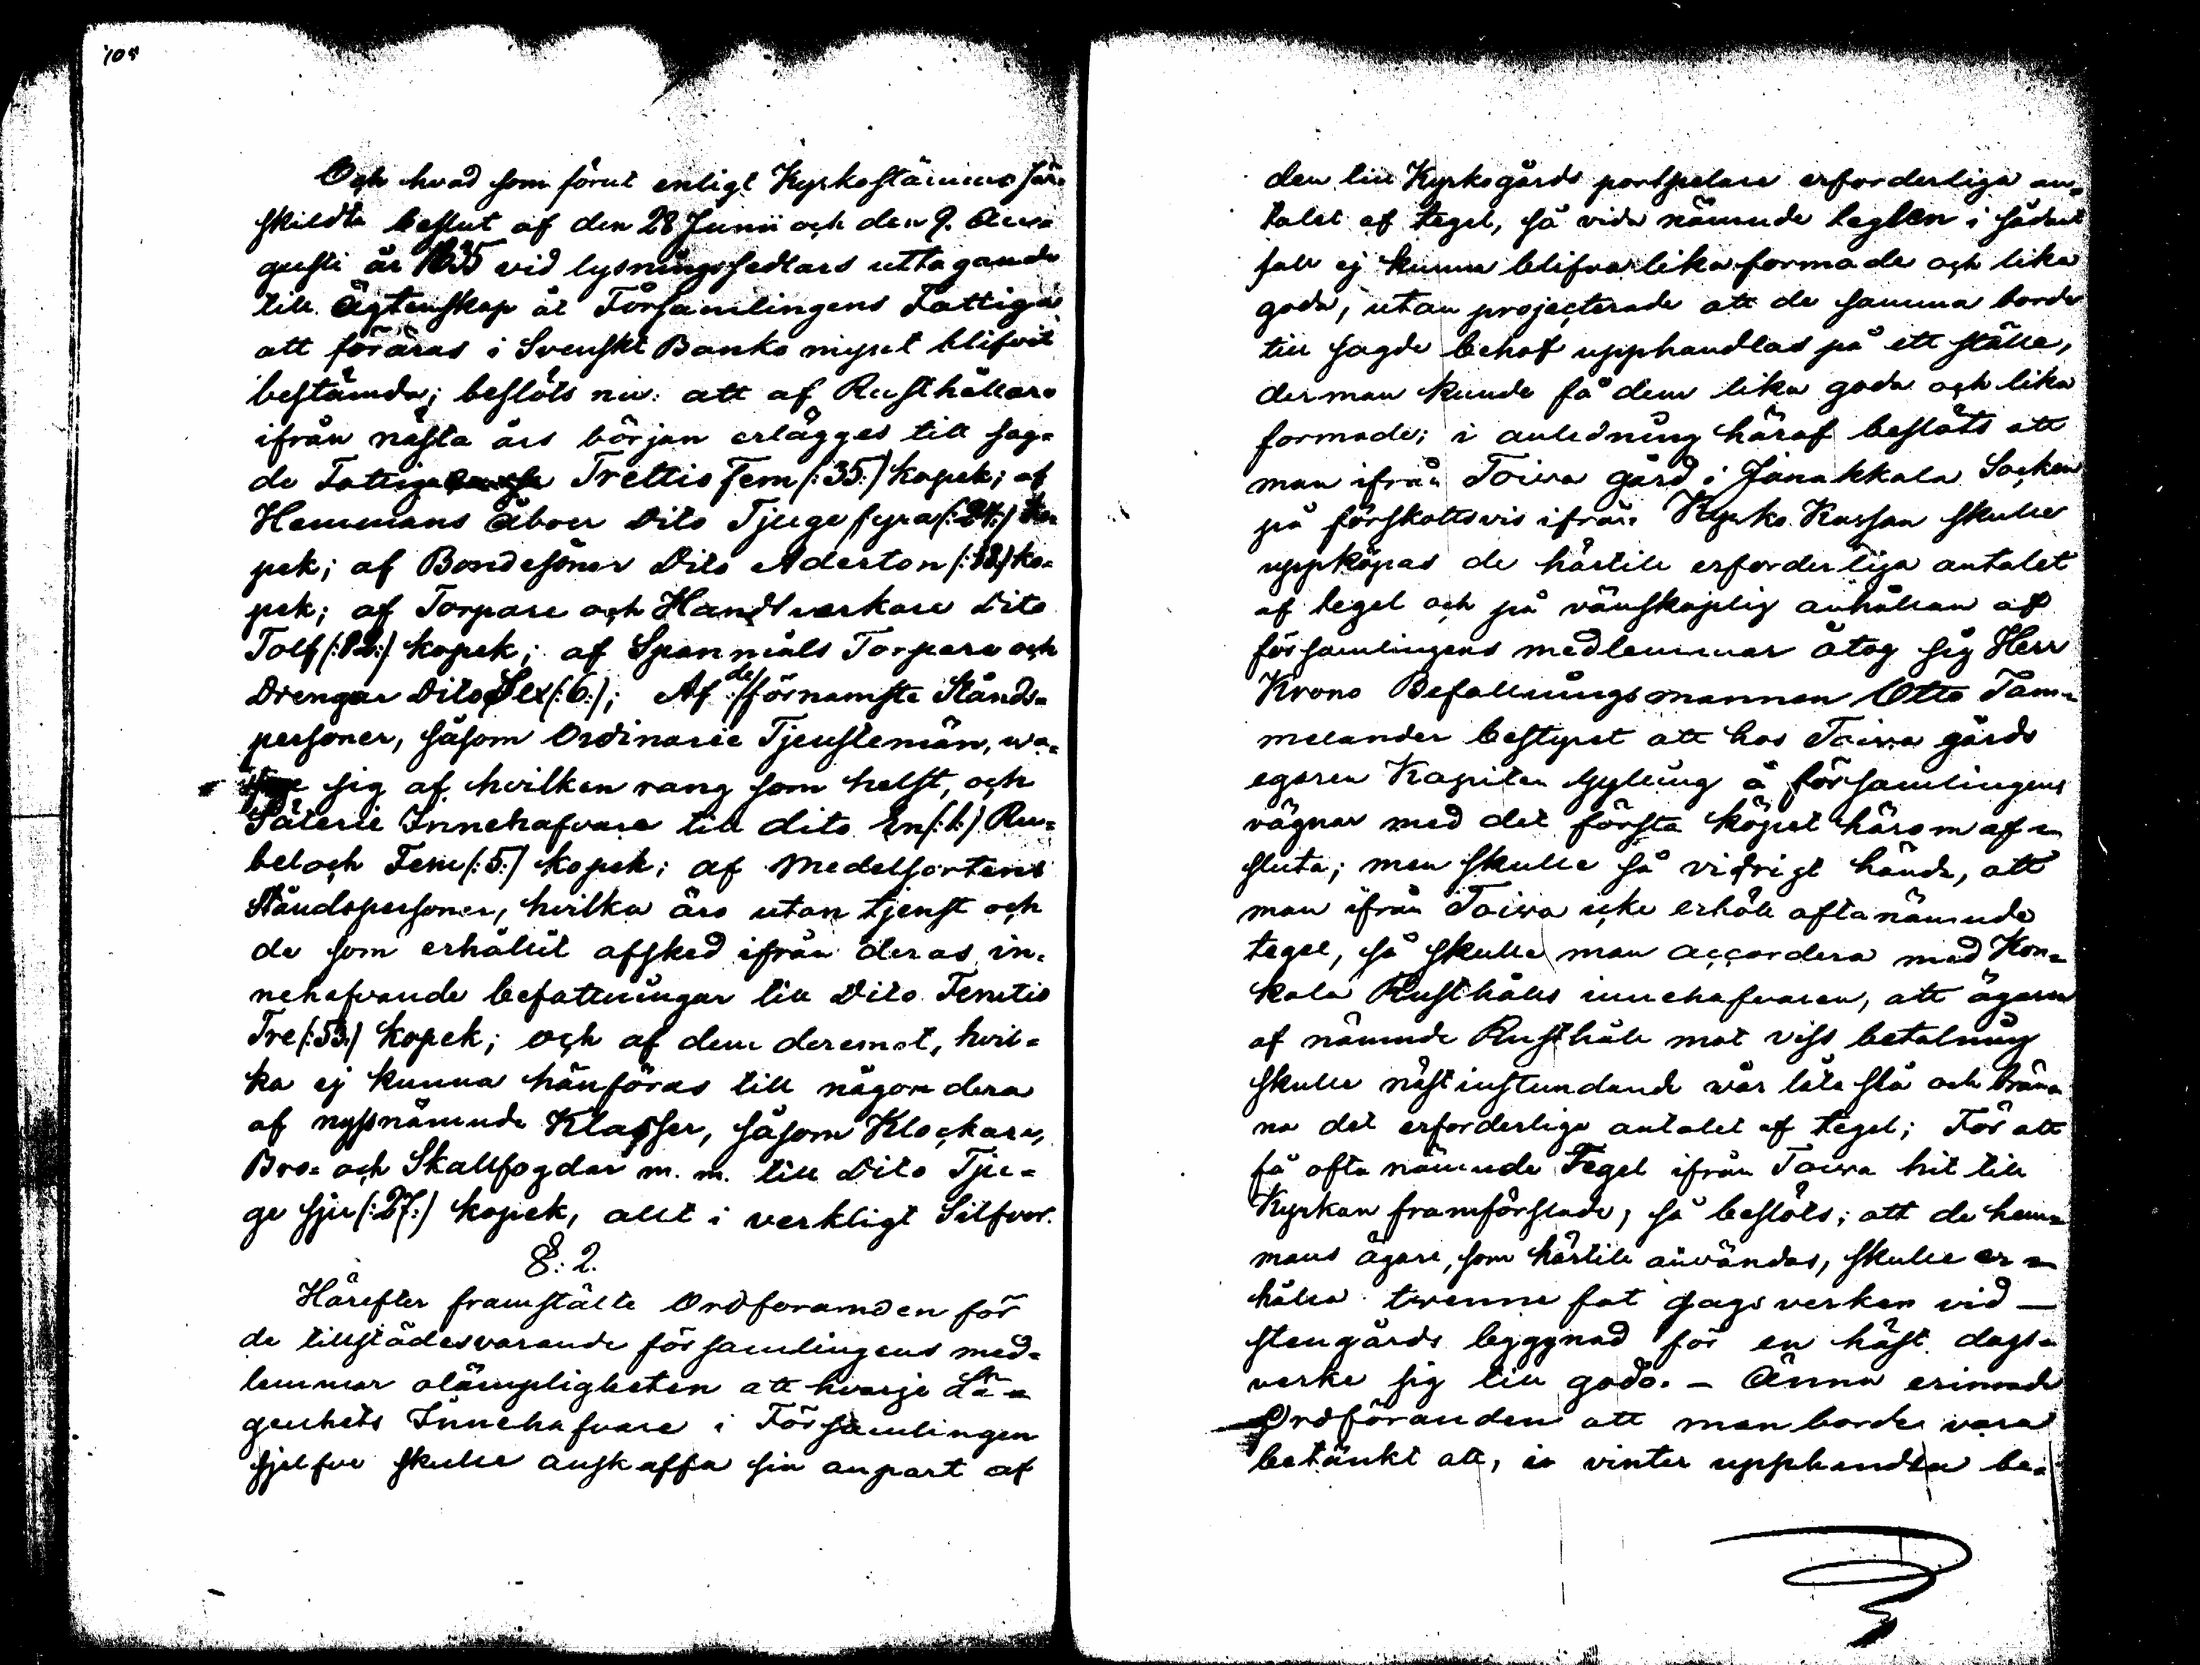 Och hvad som förut enligt Kyrkostämmo sär-
skildta beslut af den 28 Junii och den 9. Au-
gusti år 1835 vid lysningssedlars uttagande
till Ägtenskap åt Församlingens Fattiga
att föräras i Svenskt Banko mynt blifvit
bestämda; beslöts nu: att af Rusthållare
ifrån nästa års början erlägges till sag-
de Fattiga Trettio fem (:35:) kopek; af
Hemmans Åboer Dito Tjuge fyra (:24:) ko-
pek; af Bondesöner Dito Aderton (:18:) ko-
pek; af Torpare och Handtverkare Dito
Tolf (:12:) kopek; af Spannmåls Torpare och
Drengar Dito Sex (:6:); Af de förnämste Stånds-
personer, såsom Ordinarie Tjenstemän, va-
sig af hvilken rang som helst, och
Säterie Innehafvare till dito En (:1:) Ru-
bel och Fem (:5:) kopek; af Medelsortens
Ståndspersoner, hvilka äro utan tjenst och
de som erhållit afsked ifrån deras in-
nehafvande befattningar till Dito Femtio
Tre (:53:) kopek; och af dem deremot, hvil-
ka ej kunna hänföras till någondera
af nyssnämnde Klasser, såsom Klockare,
Bro- och Skallfogdar m. m. till Dito Tju-
ge sju (:27:) kopek, allt i verkligt Silfver.
§: 2.
Härefter framstälte Ordföranden för
de tillstädesvarande församlingens med-
lemmar olämpligheten att hvarje Lä-
genhets Innehafvare i Församlingen
sjelfve skulle anskaffa sin anpart af
den till Kyrkogårds portpelare erforderliga an-
talet af tegel, så vida nämnde teglen i sådant
fall ej kunna blifva lika formade och lika
goda, utan projecterade att de samma borde
till sagde behof upphandlas på ett ställe,
der man kunde få dem lika goda och lika
formade; i anledning häraf beslöts att
man ifrån Toiva gård i Janakkala Socken
på förskottsvis ifrån Kyrko Kassan skulle
uppköpas de härtill erforderliga antalet
af tegel och på vänskaplig anhållan af
församlingens medlemmar åtog sig Herr
Krono Befallningsmannen Otto Tam-
melander bestyret att hos Toiva gårds
egaren Kapiten Gyling å församlingens
vägnar med det första köpet härom af-
sluta; men skulle så vidrigt hända, att
man ifrån Toiva icke erhåll oftanämnde
tegel, så skulle man accordera med Kon-
kala Rusthålls innehafvaren, att ägaren
af nämnde Rusthåll mot viss betalning
skulle nästinstundande vår låta slå och brän-
na det erforderliga antalet af tegel; För att
få ofta nämnde Tegel ifrån Toiva hit till
Kyrkan framförslade, så beslöts; att de hem-
mans ägare, som härtill användas, skulle er-
hålla tvenne fot dagsverken vid
stengårds byggnad för en häst dags-
verke sig till godo. - Ännu erinrade
Ordföranden att man borde vara
betänkt att, i vinter upphandla be-